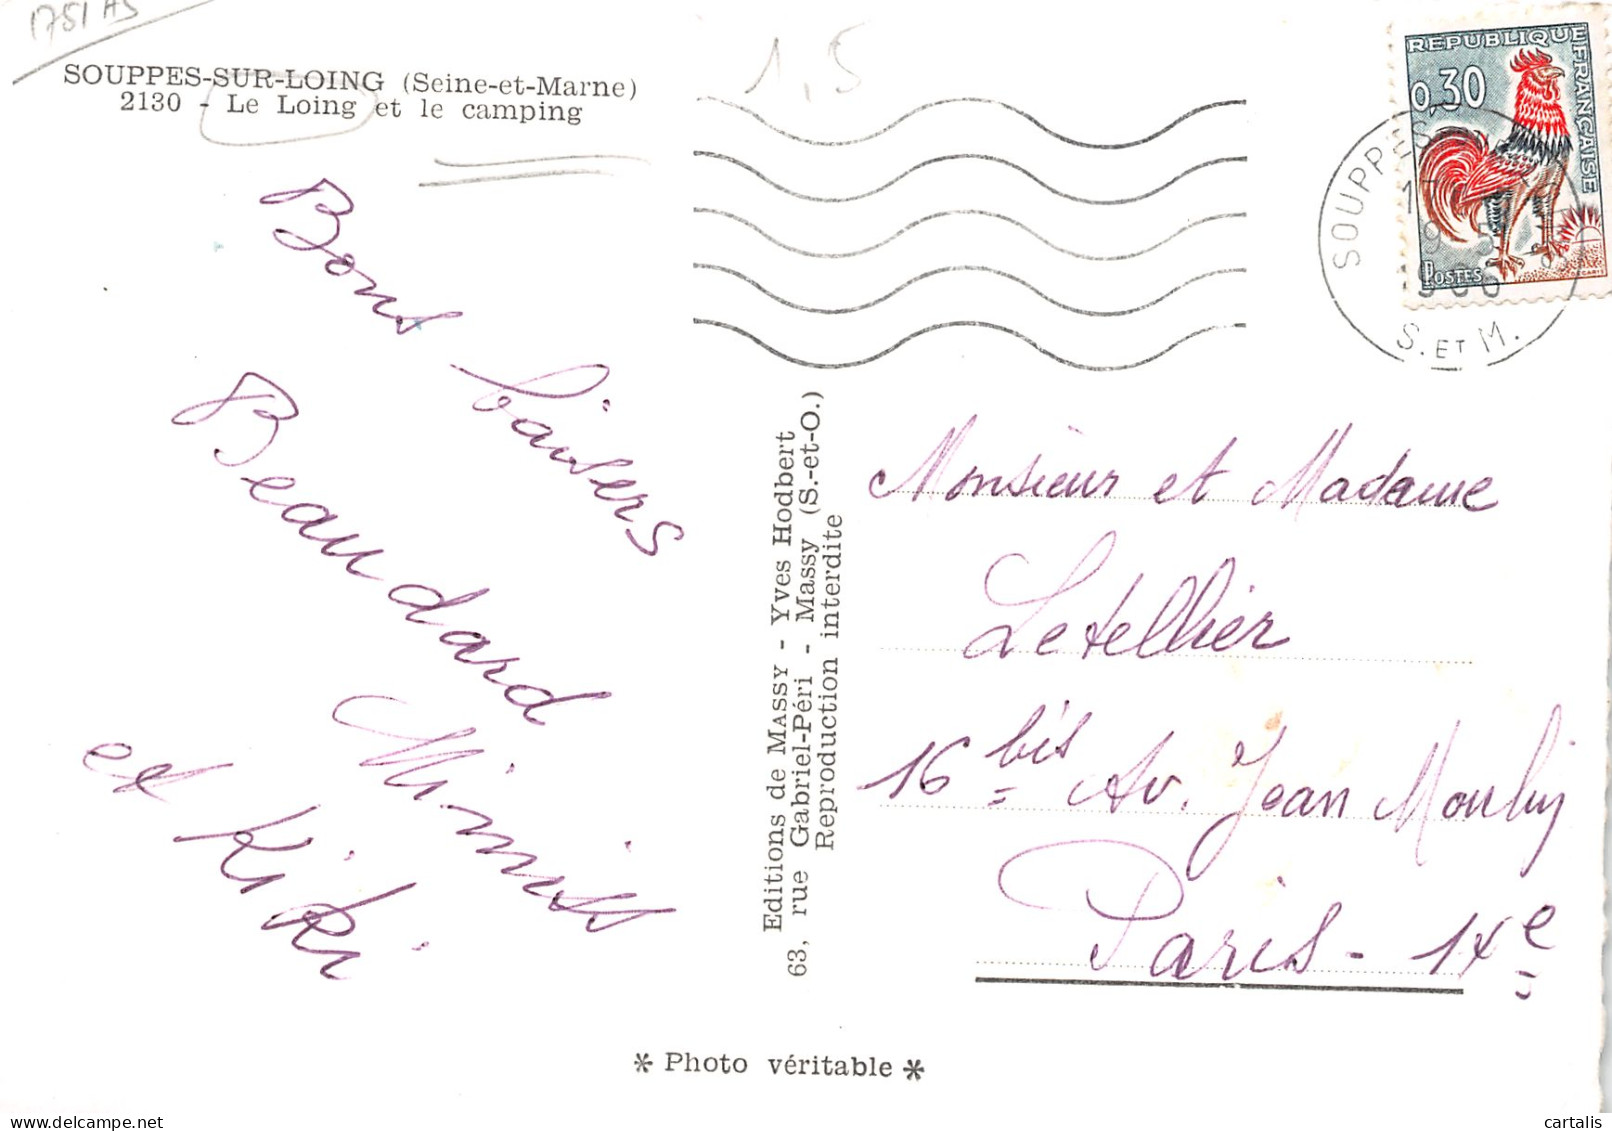 1751 A5
SOUPPES-SUR-LOING (Seine-et-Marne)
2130 - Le Loing et le camping
1,5
REPUBLIQUE FRANÇAISE
0,30
POSTES
DECARIS
SOUPPES
S. ET M.
Bons baisers
Beaudard
et Kiki
Editions de MASSY - Yves Hodbert
63, rue Gabriel-Péri - Massy (S.-et-O.)
Reproduction interdite
Monsieur et Madame
Letellier
16 bis Av. Jean Moulin
Paris - 14e
* Photo véritable *
cartalis